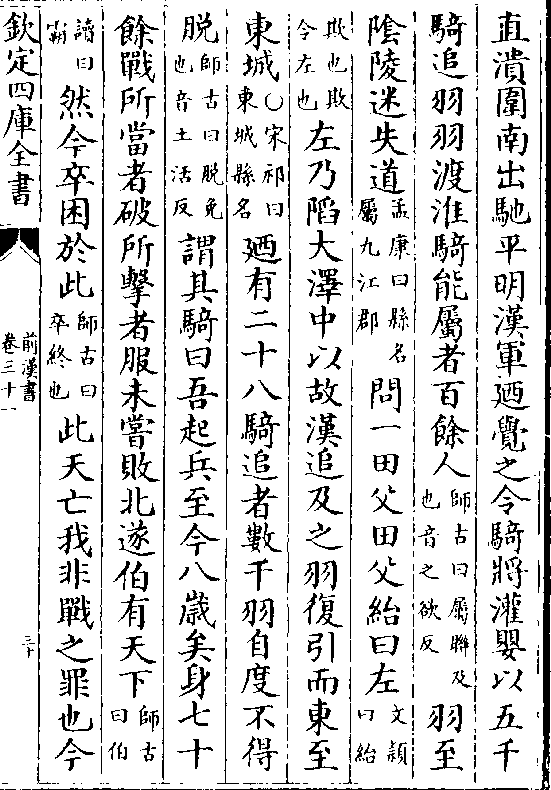 直潰圍南出馳平明漢軍廼覺之令騎將灌嬰以五千
騎追羽羽渡淮騎能屬者百餘人師古曰屬聯及也音之欲反羽至
陰陵迷失道孟康曰縣名屬九江郡問一田父田父紿曰左文頴曰紿
欺也欺令左也左乃陷大澤中以故漢追及之羽復引而東至
東城○宋祁曰東城縣名廼有二十八騎追者數千羽自度不得
脱師古曰脱免也音土活反謂其騎曰吾起兵至今八歲矣身七十
餘戰所當者破所擊者服未嘗敗北遂伯有天下師古曰伯
讀曰霸然今卒困於此師古曰卒終也此天亡我非戰之罪也今
欽定四庫全書
前漢書
卷三十一
三十